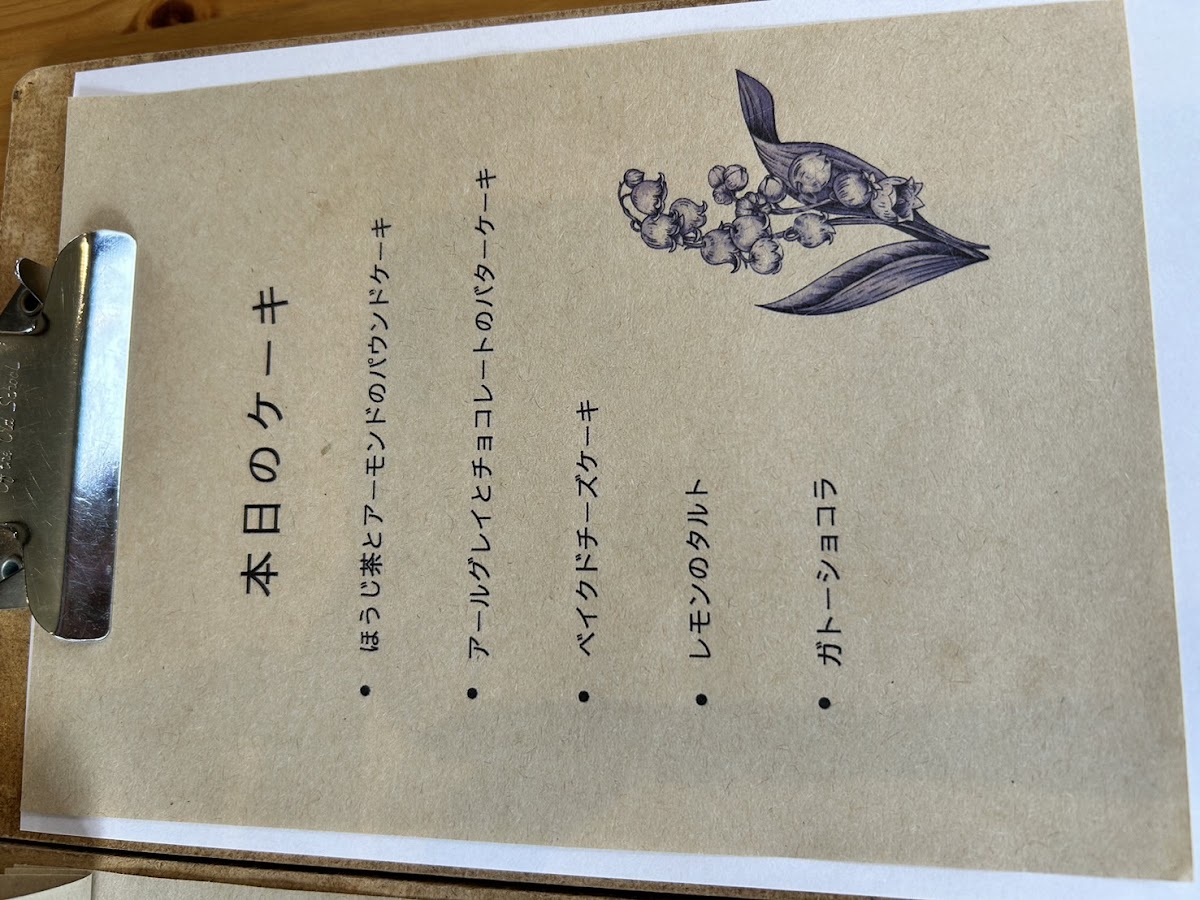 本日のケーキ
• ほうじ茶とアーモンドのパウンドケーキ
• アールグレイとチョコレートのバターケーキ
• ベイクドチーズケーキ
• レモンのタルト
• ガトーショコラ
Old School